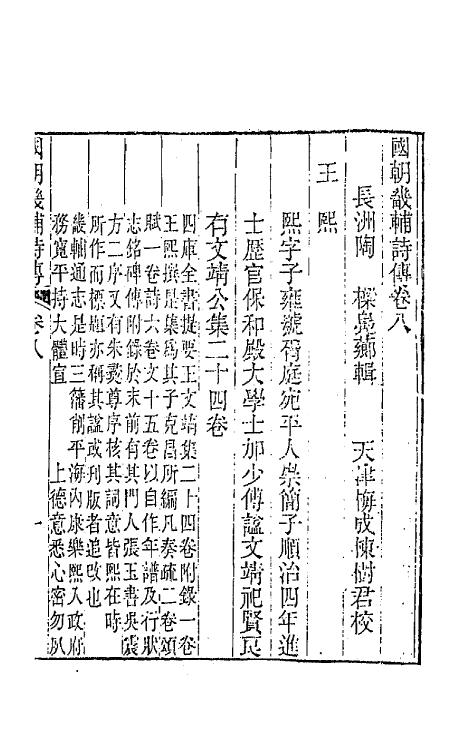 國朝畿輔詩傳卷八
長洲陶 樑鳧薌輯 天津梅成棟樹君校
王熙
熙字子雍號胥庭宛平人崇簡子順治四年進
士歷官保和殿大學士加少傅諡文靖祀賢良
有文靖公集二十四卷
四庫全書提要王文靖集二十四卷附錄一卷
王熙撰是集爲其子克昌所編凡奏疏二卷頌
賦一卷詩六卷文十五卷以自作年譜及行狀
志銘碑傳附錄於末前有其門人張玉書吳震
方二序又有朱彝尊序核其詞意皆熙在時
所作而標題亦稱其諡或刋版者追改也
畿輔通志是時三藩削平海內康樂熙入政府
務寬平持大體宣 上德意悉心密勿夙
國朝畿輔詩傳 卷八 一